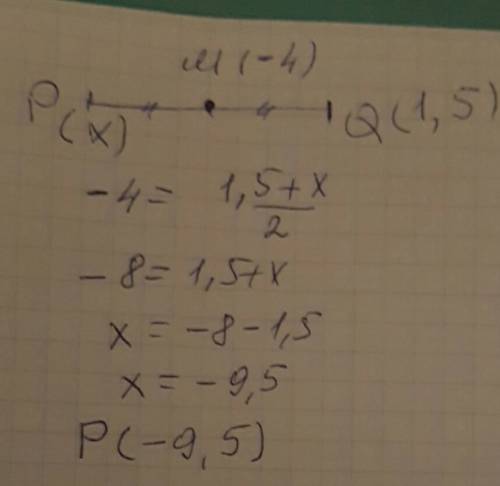 M(-4)
P(x) Q(1,5)
-4 = 1,5+x/2
-8 = 1,5+x
x = -8-1,5
x = -9,5
P(-9,5)